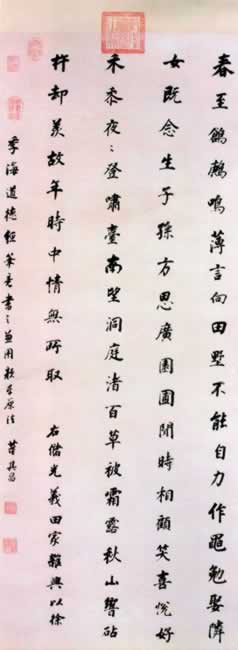 春至鶬鶊鳴薄言向田墅不能自力作黽勉娶隣
女既念生子孫方思廣園圃閒時相顧笑喜悅好
禾黍夜々登嘯臺南望洞庭渚百草被霜露秋山響砧
杵却羨故年時中情無所取 右儲光羲田家雜興以徐
季海道德經筆意書之兼用顏平原法 董其昌